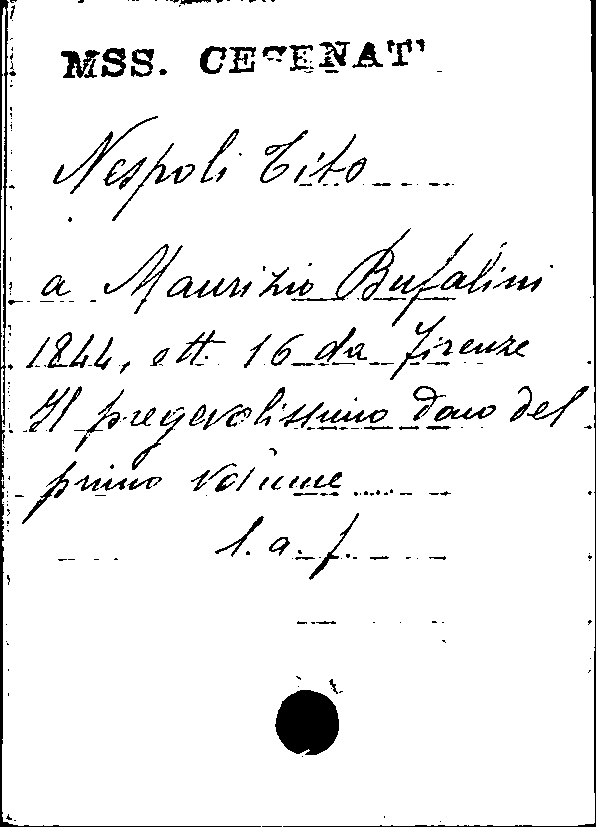 MSS. CESENATI
Nespoli Tito
a Maurizio Bufalini
1844, ott. 16 da Firenze
Il pregevolissimo dono del
primo volume
l. a. f.